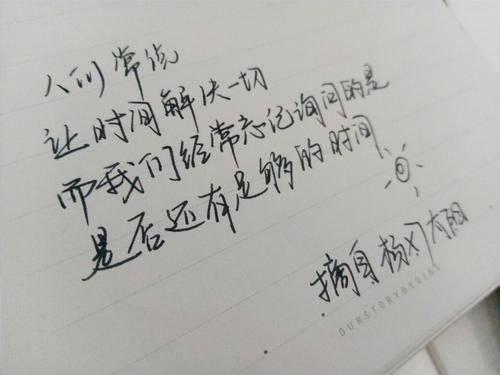 人们常说
让时间解决一切
而我们经常忘记询问的是
是否还有足够的时间
摘自杨闪有阳
OURSTORYBEGINS